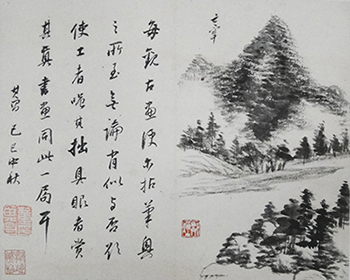 玄宰
每觀古畫便尔拈筆興
之所至無論肖似与否欲
使工者嗤其拙具眼者賞
其真書畫同此一局耳
其昌 己巳中秋